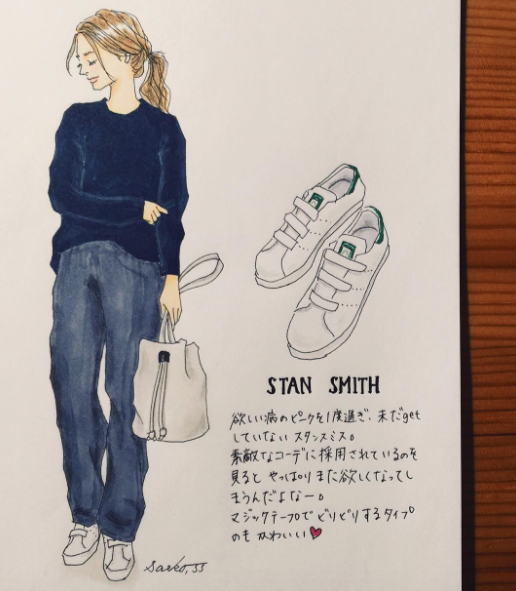 STAN SMITH
欲しい病のピークを1度過ぎ、未だget
していないスタンスミス。
素敵なコーデに採用されているのを
見ると やっぱりまた欲しくなってし
まうんだよなー。
マジックテープでどりどりするタイプ
のも かわいい♥